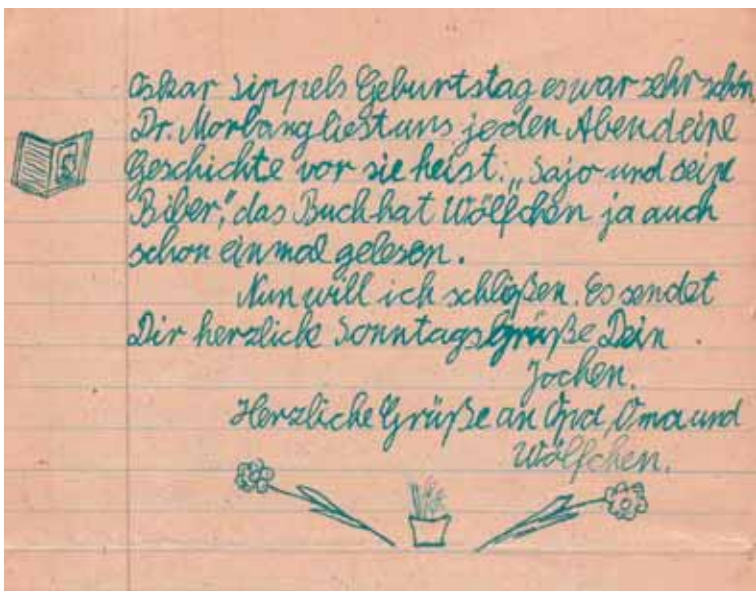 Oskar Sippels Geburtstag es war sehr schön
Dr. Morbang ließt uns jeden Abend eine
Geschichte vor sie heist: „Sajo und seine
Biber", das Buch hat Wölfchen ja auch
schon einmal gelesen.
Nun will ich schließen. Es sendet
Dir herzlich Sonntagsgrüße Dein
Jochen.
Herzliche Grüße an Opa, Oma und
Wölfchen.